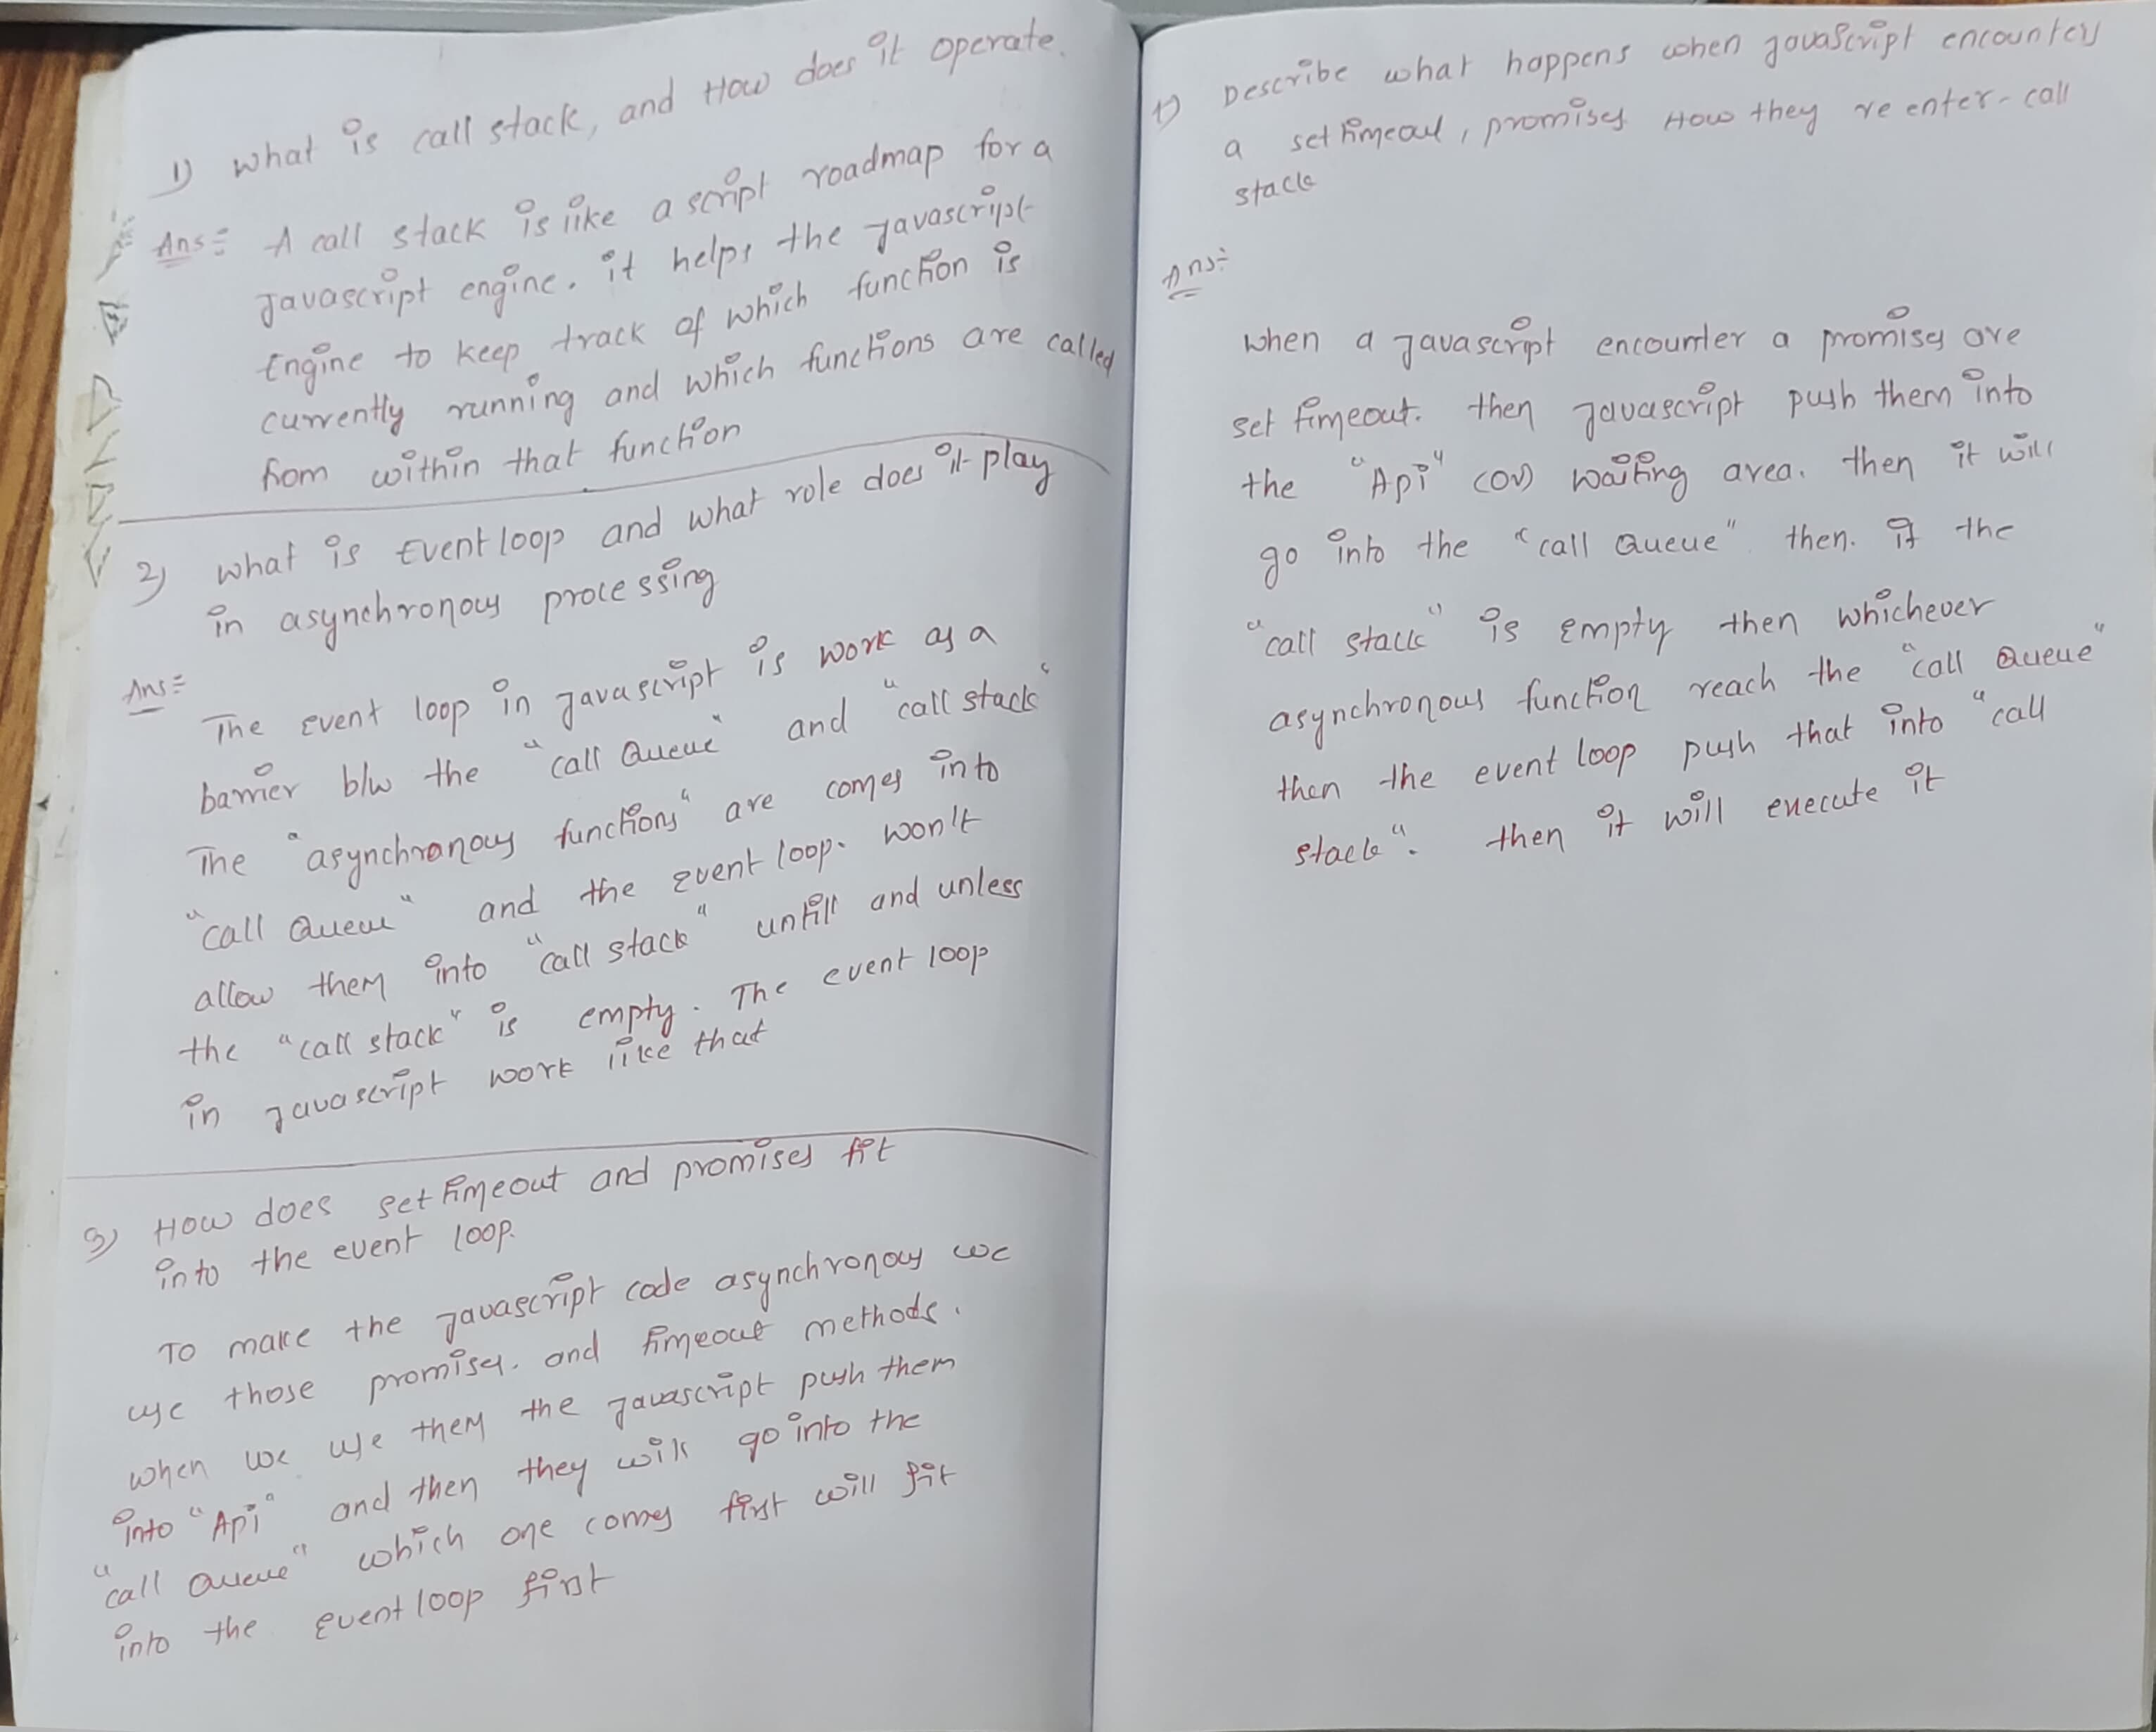 1) what is call stack, and How does it operate.
Ans:- A call stack is like a script roadmap for a
Javascript engine. it helps the Javascript
Engine to keep track of which function is
currently running and which functions are called
from within that function
2) what is Event loop and what role does it play
in asynchronous processing
Ans:-
The event loop in Javascript is work as a
barrier b/w the "call Queue" and "call stack"
The "asynchronous functions" are comes into
"call Queue" and the event loop. won't
allow them into "call stack" untill and unless
the "call stack" is empty. The event loop
in Javascript work like that
3) How does set timeout and promises fit
into the event loop.
To make the Javascript code asynchronous we
use those promises. and timeout methods.
when we use them the Javascript push them
into "Api" and then they will go into the
"call Queue" which one comes first will fit
into the event loop first
1) Describe what happens when Javascript encounters
a set timeout, promises How they re enter-call
stack
Ans:-
when a Javascript encounter a promises are
set timeout. then Javascript push them into
the "Api" (or) waiting area. then it will
go into the "call Queue" then. if the
"call stack" is empty then whichever
asynchronous function reach the "call Queue"
then the event loop push that into "call
stack". then it will execute it